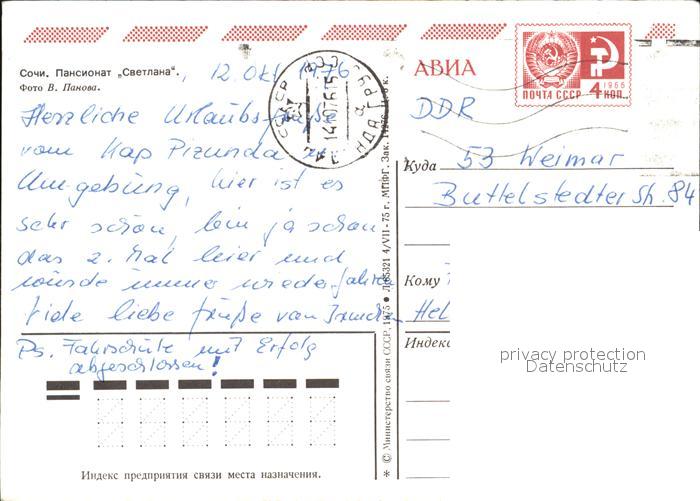 Сочи. Пансионат „Светлана“.
Фото В. Панова.
12. Okt. 1976
Herzliche Urlaubsgrüße
vom Kap Pizunda u.
Umgebung, hier ist es
sehr schön, bin ja schon
das 2. Mal hier und
würde immer wieder fahren
Viele liebe Grüße von
Ps. Fahrschule mit Erfolg
abgeschlossen!
Индекс предприятия связи места назначения.
* © Министерство связи СССР, 1975 • 4/VII - 75 г. МПФГ. Зак.
СССР
АВИА
ПОЧТА СССР
1966
4 КОП.
DDR
Куда 53 Weimar
Buttelstedter Str. 84
Кому
Hel
Индекс
privacy protection
Datenschutz